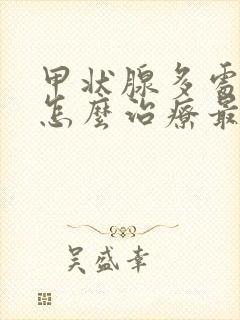 甲状腺多需
怎麼治療最
吴盛幸